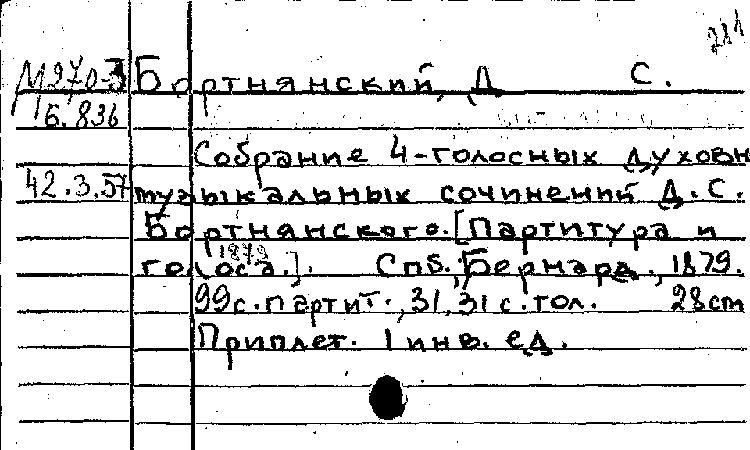 281
М270-3 Бортнянский, Д С.
Б.836
Собрание 4-голосных духовн
42.3.57 музыкальных сочинений Д.С.
Бортнянского. [Партитура и
1879
голоса.]. Спб., Бернард, 1879.
99с. партит., 31, 31 с. гол. 28cm
Приплет. 1 инв. ед.